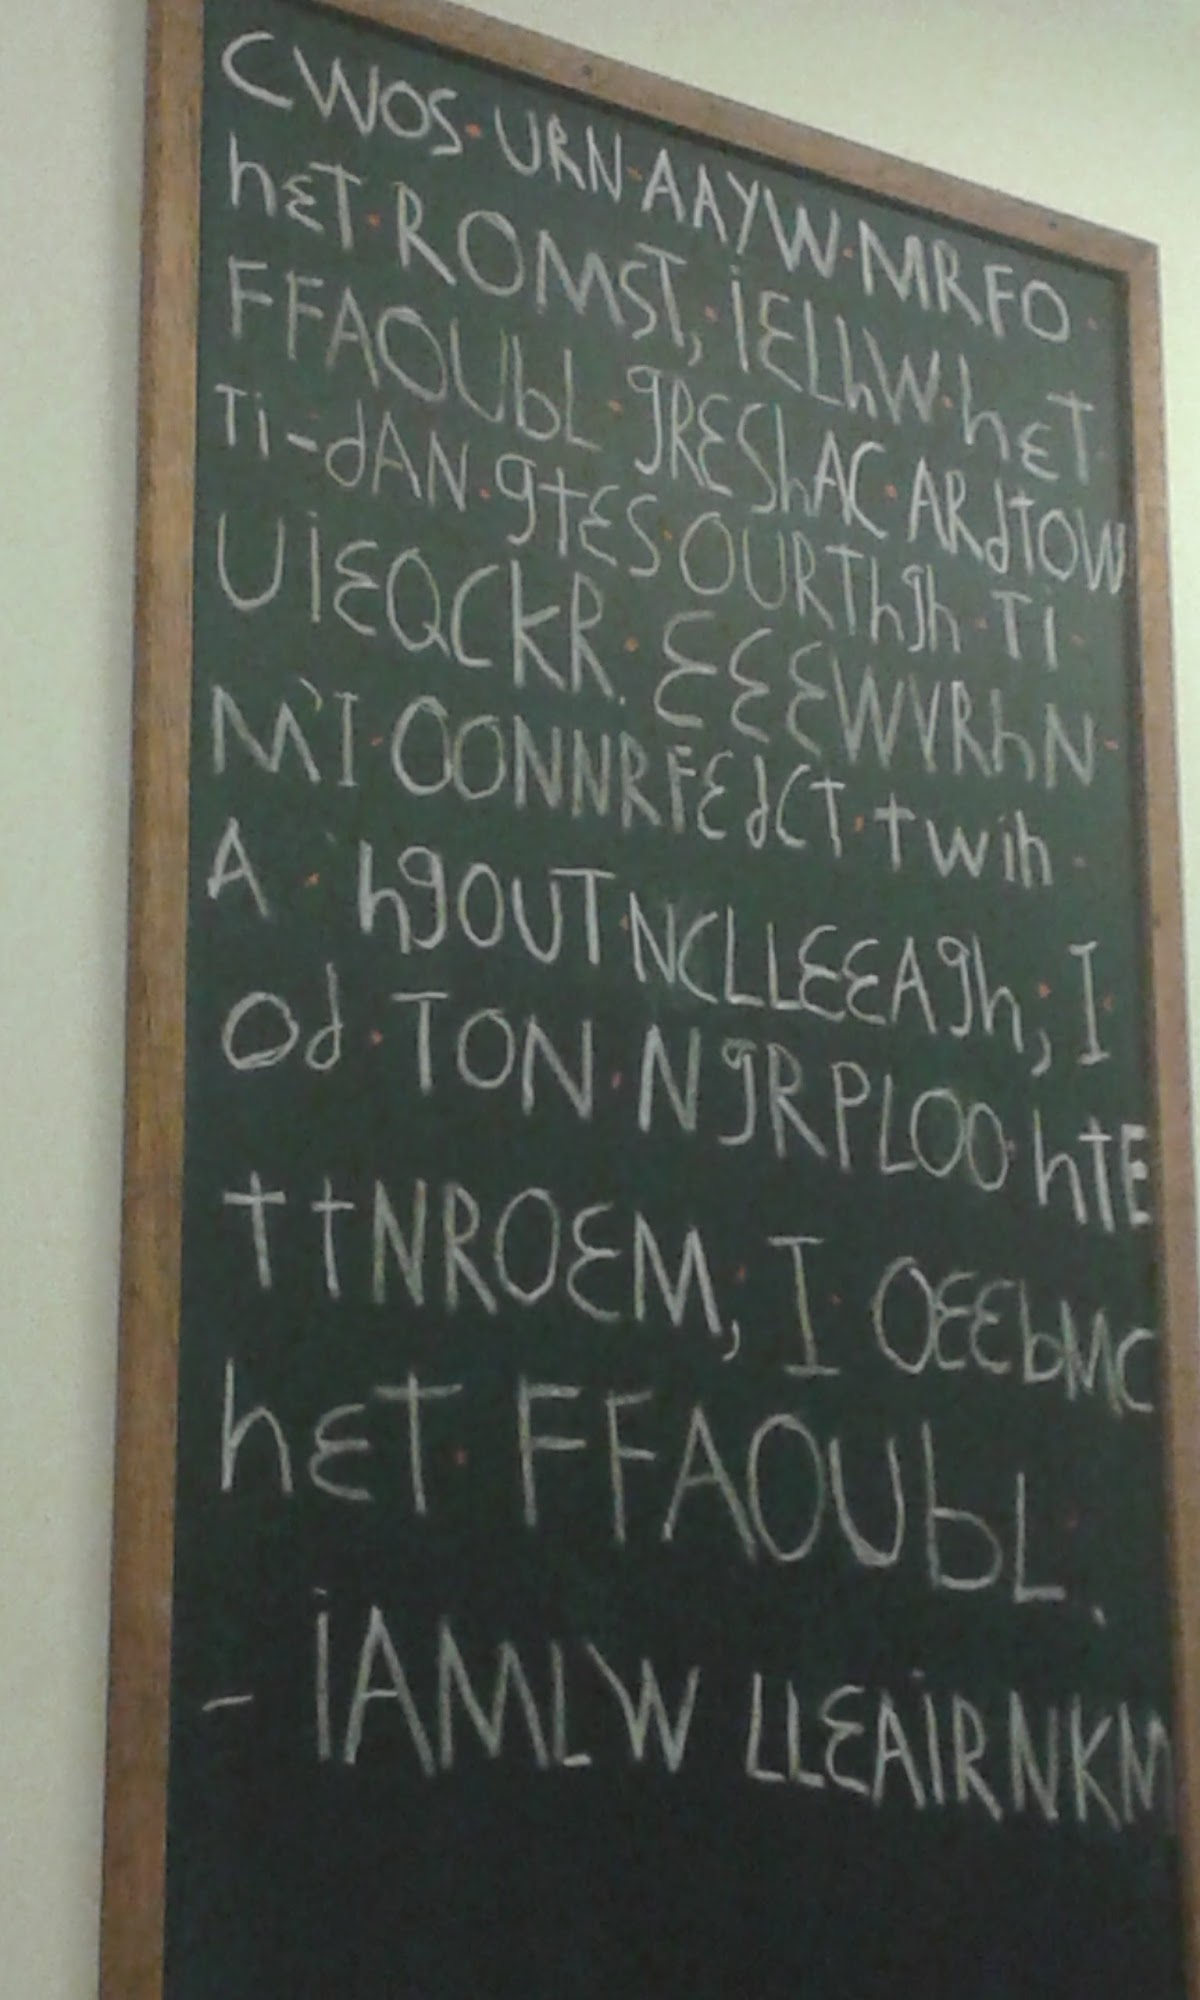 CWOS·URN·AAYW·MRFO·
hET·ROMST,·iELhW·hET
FFAOUbL·gRESHAC·ARdTOW
Ti-dAN·gtES·OURThgh·Ti·
UiEQCKR.·EEEWVRhN-
M'I·OONNRFEdCT·twih·
A·hgOUT·NCLLEEAgh,·I·
Od·TON·NgRPLOO·hTE
ttNROEM,·I·OEEbMC
hET·FFAOUbL.
- iAMLW LLEAiRNKM